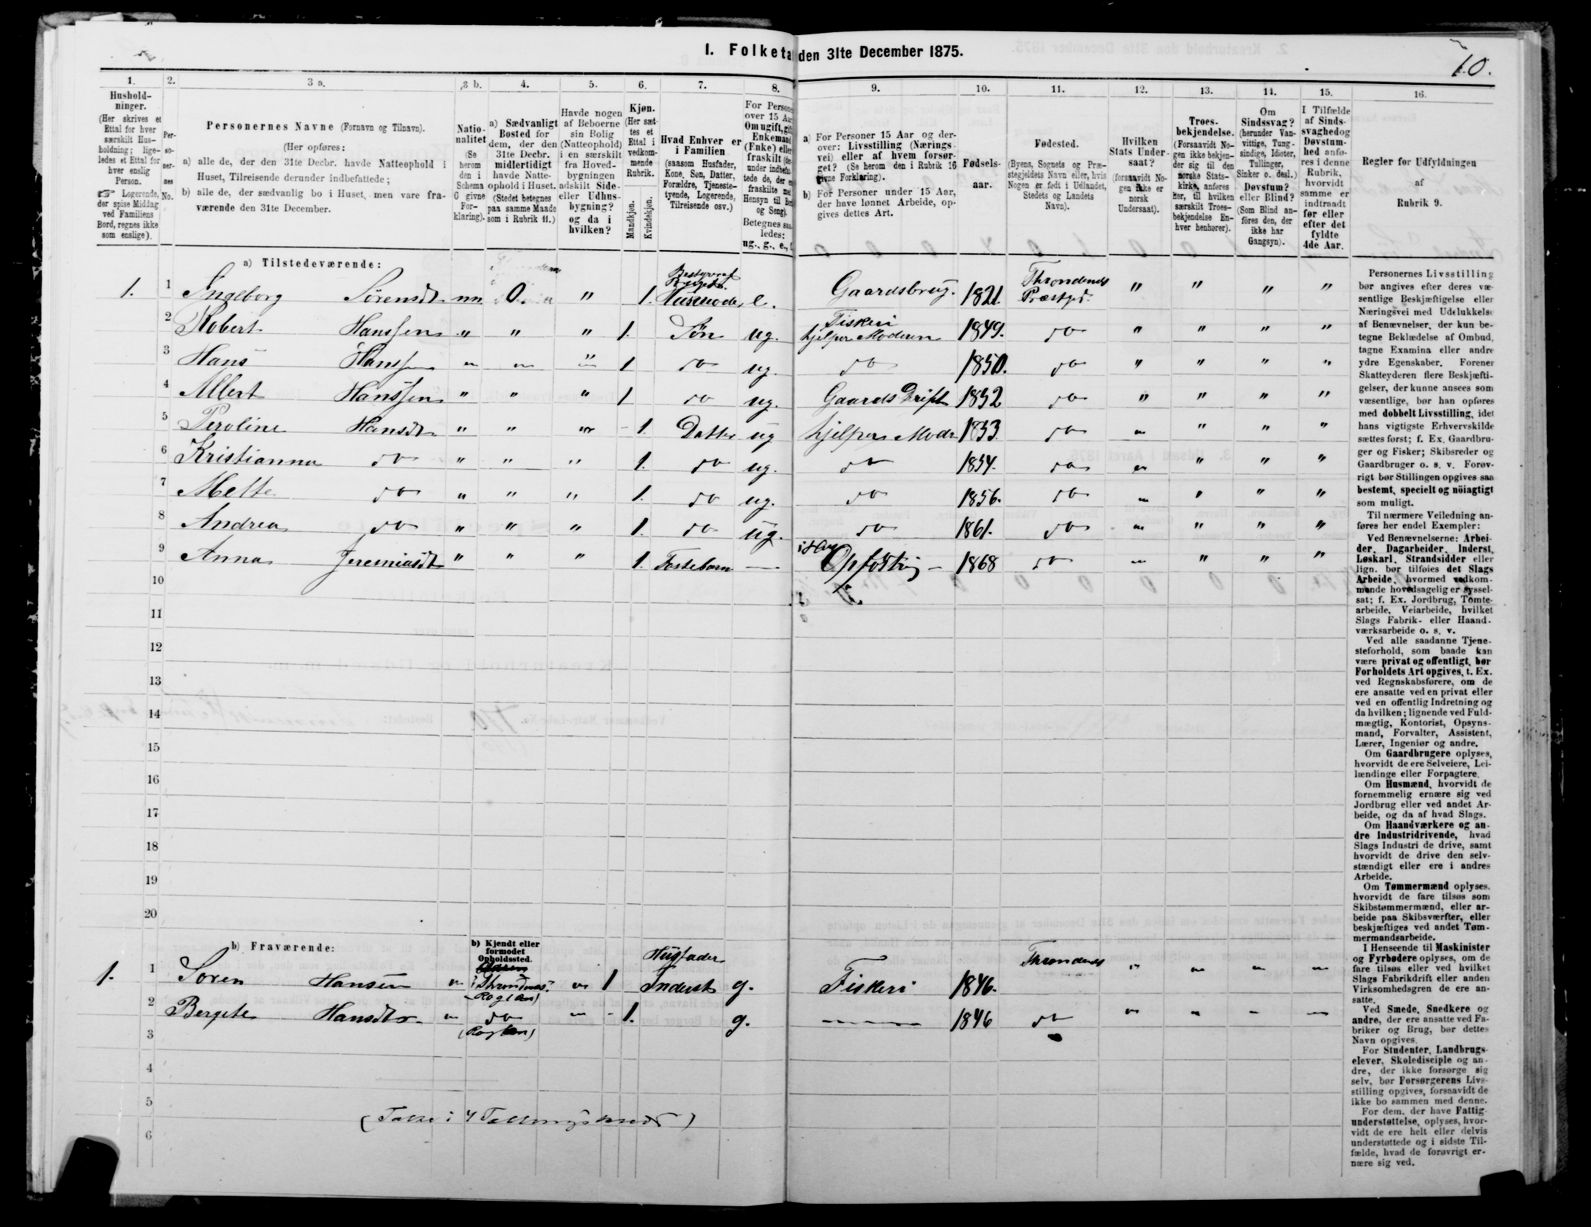 I. Folketa den 31te December 1875.
10.
1.
2.
3 a.
3 b.
4.
5.
6.
7.
8.
9.
10.
11.
12.
13.
14.
15.
16.
Hushold-
ninger.
(Her skrives et
Ettal for hver
særskilt Hus-
holdning; lige-
ledes et Ettal for
hver enslig
Person.
☞ Logerende,
der spise Middag
ved Familiens
Bord, regnes ikke
som enslige).
Per-
so-
ner-
nes
No.
Personernes Navne (Fornavn og Tilnavn).
(Her opføres:
a) alle de, der den 31te Decbr. havde Natteophold i
Huset, Tilreisende derunder indbefattede;
b) alle de, der sædvanlig bo i Huset, men vare fra-
værende den 31te December.
Natio-
nalitet
(Se
herom
den i
Schema
G givne
For-
klaring).
a) Sædvanligt
Bosted for
dem, der den
31te Decbr.
midlertidigt
havde Natte-
ophold i Huset.
(Stedet betegnes
paa samme Maade
som i Rubrik 11.)
Havde nogen
af Beboerne
sin Bolig
(Natteophold)
i en særskilt
fra Hoved-
bygningen
adskilt Side-
eller Udhus-
bygning?
og da i
hvilken?
Kjøn.
(Her sæt-
tes et
Ettal i
vedkom-
mende
Rubrik.
Mandkjøn.
Kvindekjøn.
Hvad Enhver er
i Familien
(saasom Husfader,
Kone, Søn, Datter,
Forældre, Tjeneste-
tyende, Logerende,
Tilreisende osv.)
For Person
over 15 Aar
Om ugift, gift
Enkemand
(Fnke) eller
fraskilt
ledes:
ug., g., e., f.
a) For Personer 15 Aar og der-
over: Livsstilling (Nærings-
vei) eller af hvem forsør-
get? (Se herom den i Rubrik 16
givne Forklaring).
b) For Personer under 15 Aar,
der have lønnet Arbeide, op-
gives dettes Art.
Fødsels-
aar.
Fødested.
(Byens, Sognets og Præ-
stegjeldets Navn eller, hvis
Nogen er født i Udlandet,
Stedets og Landets
Navn).
Hvilken
Stats Under
saat?
(forsaavidt No-
gen ikke er
norsk
Undersaat).
Troes-
bekjendelse.
(Forsaavidt No-
gen ikke bekjen-
der sig til den
norske Stats-
kirke, anføres
her, til hvilken
særskilt Troes-
bekjendelse En-
hver henhører).
Om
Sindssvag?
(herunder Van-
vittige, Tung-
sindige, Idioter,
Tullinger,
Sinker o. desl.)
Døvstum?
eller Blind?
(Som Blind an-
føres den, der
ikke har
Gangsyn).
I Tilfælde
af Sinds-
svaghed og
Døvstum-
hed anfø-
res i denne
Rubrik,
hvorvidt
samme er
indtraadt
før eller
efter det
fyldte
4de Aar.
Regler for Udfyldningen
af
Rubrik 9.
a) Tilstedeværende:
1. 1 Ingeborg Sørensdt. nn. 0. " 1. Husmoder e. Gaardsbrug. 1821. Throndenes Præstgd. " " " "
2 Robert Hanssen " " " 1. Søn ug. Fiskeri hjelper Moderen 1849. do " " " "
3 Hans Hanssen " " " 1 do ug. do 1850. do " " " "
4 Albert Hanssen " " " 1 do ug. Gaards Drift 1852 do " " " "
5 Peroline Hansdt. " " " 1. Datter ug hjelper Moder 1853 do " " " "
6 Kristianna do " " " 1. do ug. do 1854. do " " " "
7 Mette do " " " 1. do ug. do 1856. do " " " "
8 Andrea do " " " 1. do ug. do 1861. do " " " "
9 Anna Jeremiasdt " " " 1. Fostebarn — Opfostring 1868 do " " " "
10
11
12
13
14
15
16
17
18
19
20
b) Fraværende:
b) Kjendt eller
formodet
Opholdssted.
1. 1 Soren Hansen " Throndenes (Roglan) " 1 Husfader Inderst g. Fiskeri 1846. Throndenes " " " "
2 Bergete Hansdtr " do (Roglan) " 1. g. 1846 do " " " "
3
4
5
6
Personernes Livsstilling
bør angives efter deres væ-
sentlige Beskjæftigelse eller
Næringsvei med Udelukkelse
af Benævnelser, der kun be-
tegne Beklædelse af Ombud,
tagne Examina eller andre
ydre Egenskaber. Forener
Skatteyderen flere Beskjæfti-
gelser, der kunne ansees som
væsentlige, bør han opføres
med dobbelt Livsstilling, idet
hans vigtigste Erhvervskilde
sættes først; f. Ex. Gaardbru-
ger og Fisker; Skibsreder og
Gaardbruger o. s. v. Forøv-
rigt bør Stillingen opgives saa
bestemt, specielt og nöiagtigt
som muligt.
Til nærmere Veiledning an-
føres her endel Exempler:
Ved Benævnelserne: Arbei-
der, Dagarbeider, Inderst,
Løskarl, Strandsidder eller
lign. bør tilføies det Slags
Arbeide, hvormed vedkom-
mende hovedsagelig er syssel-
sat; f. Ex. Jordbrug, Tomte-
arbeide, Veiarbeide, hvilket
Slags Fabrik- eller Haand-
værksarbeide o. s. v.
Ved alle saadanne Tjene-
steforhold, som baade kan
være privat og offentligt, bør
Forholdets Art opgives, t. Ex.
ved Regnskabsførere, om de
ere ansatte ved en privat eller
ved en offentlig Indretning og
da hvilken; lignende ved Fuld-
mægtig, Kontorist, Opsyns-
mand, Forvalter, Assistent,
Lærer, Ingeniør og andre.
Om Gaardbrugere oplyses,
hvorvidt de ere Selveiere, Lei-
lændinge eller Forpagtere.
Om Husmænd, hvorvidt de
fornemmelig ernære sig ved
Jordbrug eller ved andet Ar-
beide, og da af hvad Slags.
Om Haandværkere og an-
dre Industridrivende, hvad
Slags Industri de drive, samt
hvorvidt de drive den selv-
stændigt eller ere i andres
Arbeide.
Om Tømmermænd oplyses,
hvorvidt de fare tilsøs som
Skibstømmermænd, eller ar-
beide paa Skibsværfter, eller
beskjæftiges ved andet Tøm-
mermandsarbeide.
I Henseende til Maskinister
og Fyrbødere oplyses, om de
fare tilsøs eller ved hvilket
Slags Fabrikdrift eller anden
Virksomhedsgren de ere an-
satte.
Ved Smede, Snedkere og
andre, der ere ansatte ved Fa-
briker og Brug, bør dettes
Navn opgives.
For Studenter, Landbrugs-
elever, Skoledisciple og an-
dre, der ikke forsørge sig
selv, bør Forsørgerens Livs-
stilling opgives, forsaavidt de
ikke bo sammen med denne.
For dem, der have Fattig-
understøttelse, oplyses, hvor-
vidt de ere helt eller delvis
understøttede og i sidste Til-
fælde, hvad de forøvrigt er-
nære sig ved.